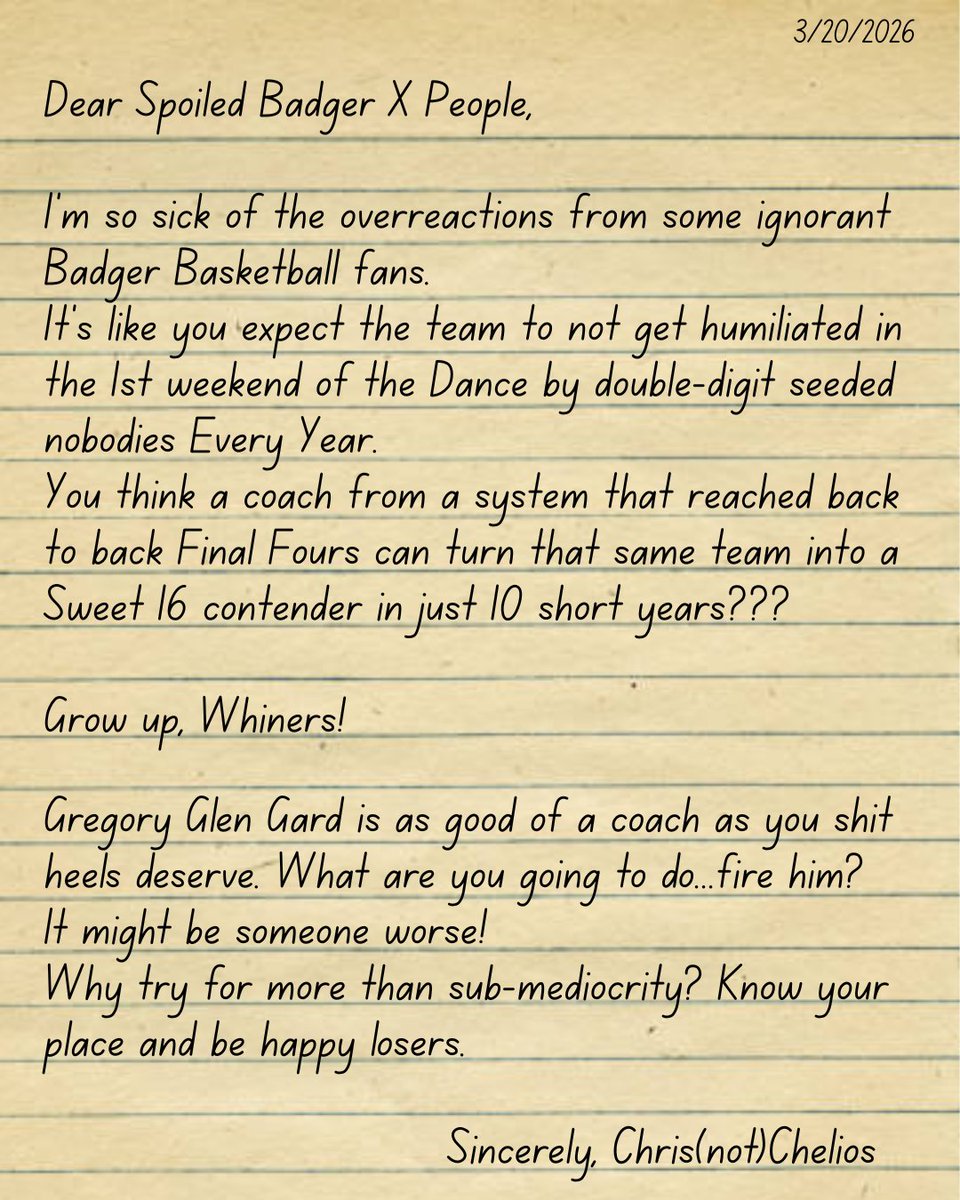 3/20/2026
Dear Spoiled Badger X People,
I'm so sick of the overreactions from some ignorant
Badger Basketball fans.
It's like you expect the team to not get humiliated in
the 1st weekend of the Dance by double-digit seeded
nobodies Every Year.
You think a coach from a system that reached back
to back Final Fours can turn that same team into a
Sweet 16 contender in just 10 short years???
Grow up, Whiners!
Gregory Glen Gard is as good of a coach as you shit
heels deserve. What are you going to do...fire him?
It might be someone worse!
Why try for more than sub-mediocrity? Know your
place and be happy losers.
Sincerely, Chris(not)Chelios